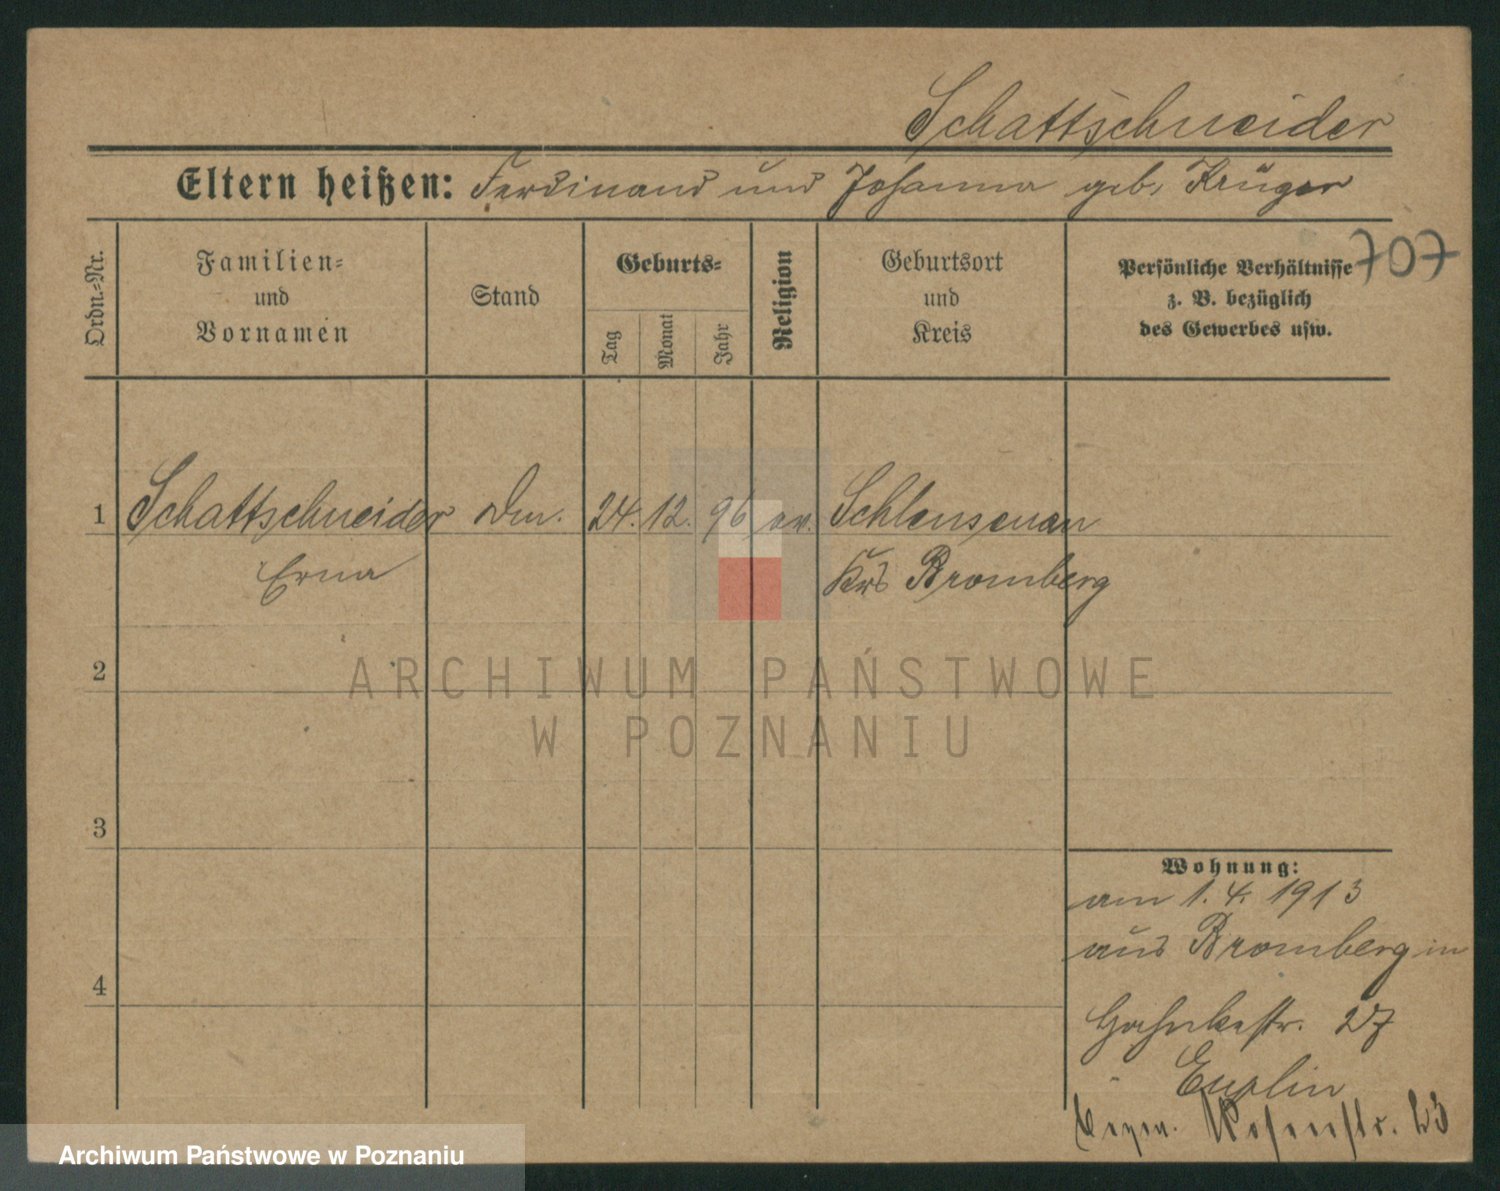 Schattschneider
Eltern heißen: Ferdinand und Johanna geb. Krüger
Ordn.-Nr.
Familien-
und
Vornamen
Stand
Geburts-
Tag
Monat
Jahr
Religion
Geburtsort
und
Kreis
Persönliche Verhältnisse
z. B. bezüglich
des Gewerbes usw.
707
1 Schattschneider 24. 12. 96 ev. Schleusenau
Erna Krs Bromberg
2
3
4
Wohnung:
am 1. 4. 1913
aus Bromberg in
27
ARCHIWUM PAŃSTWOWE
W POZNANIU
Archiwum Państwowe w Poznaniu